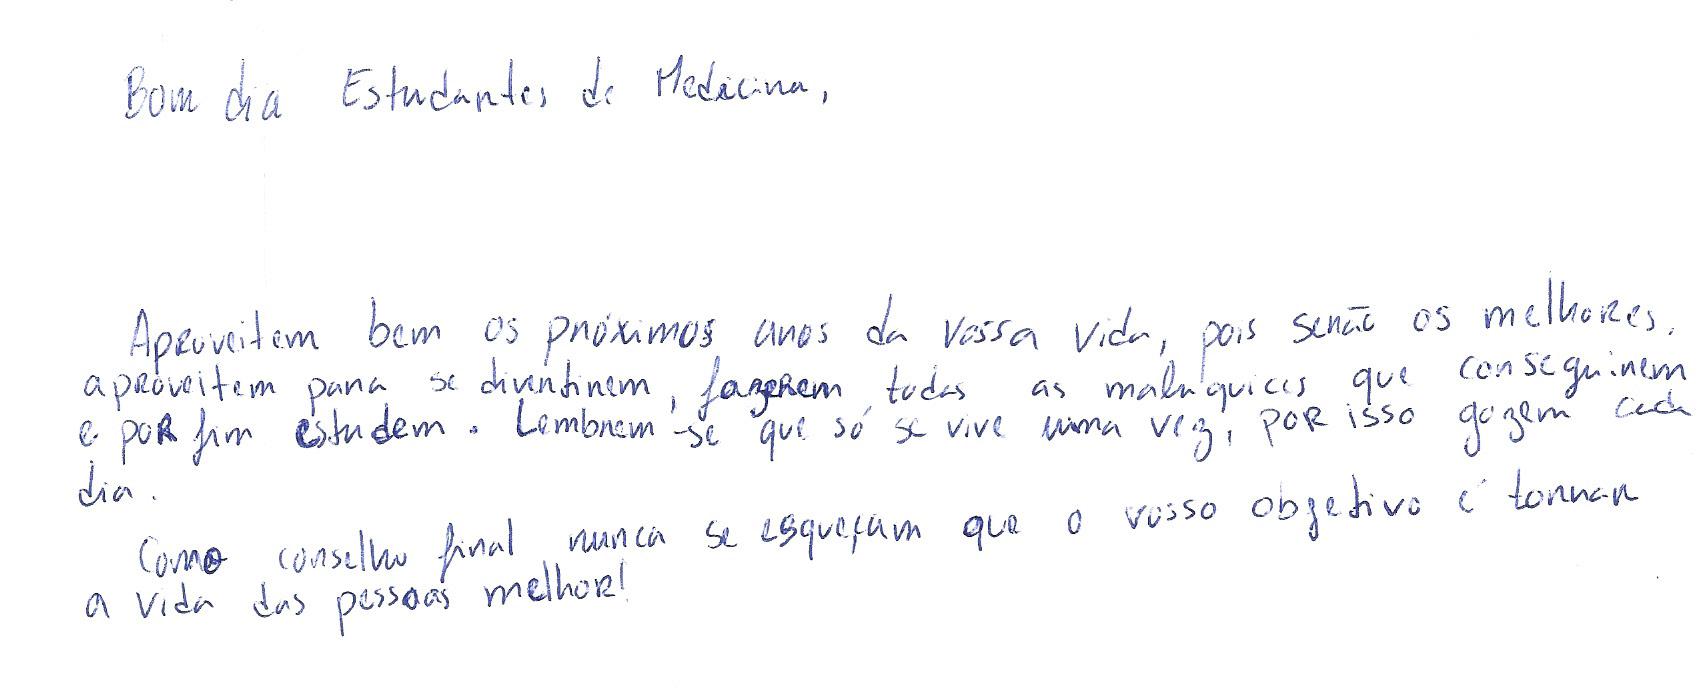 Bom dia Estudantes de Medicina,
Aproveitem bem os próximos anos da vossa vida, pois serão os melhores,
aproveitem para se divertirem, fazerem todas as maluquices que conseguirem
e por fim estudem. Lembrem-se que só se vive uma vez, por isso gozem cada
dia.
Como conselho final nunca se esqueçam que o vosso objetivo é tornar
a vida das pessoas melhor!